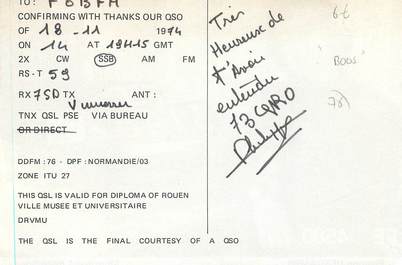 TO: F6BFH
CONFIRMING WITH THANKS OUR QSO
OF 18-11 1974
ON 14 AT 19H15 GMT
2X CW SSB AM FM
RS-T 59
RX 7SD TX ANT:
TNX QSL PSE VIA BUREAU
OR DIRECT
DDFM : 76 - DPF : NORMANDIE/03
ZONE ITU 27
THIS QSL IS VALID FOR DIPLOMA OF ROUEN
VILLE MUSEE ET UNIVERSITAIRE
DRVMU
THE QSL IS THE FINAL COURTESY OF A QSO
Très
Heureux de
t'Avoir
entendu
73 QRO
Philippe